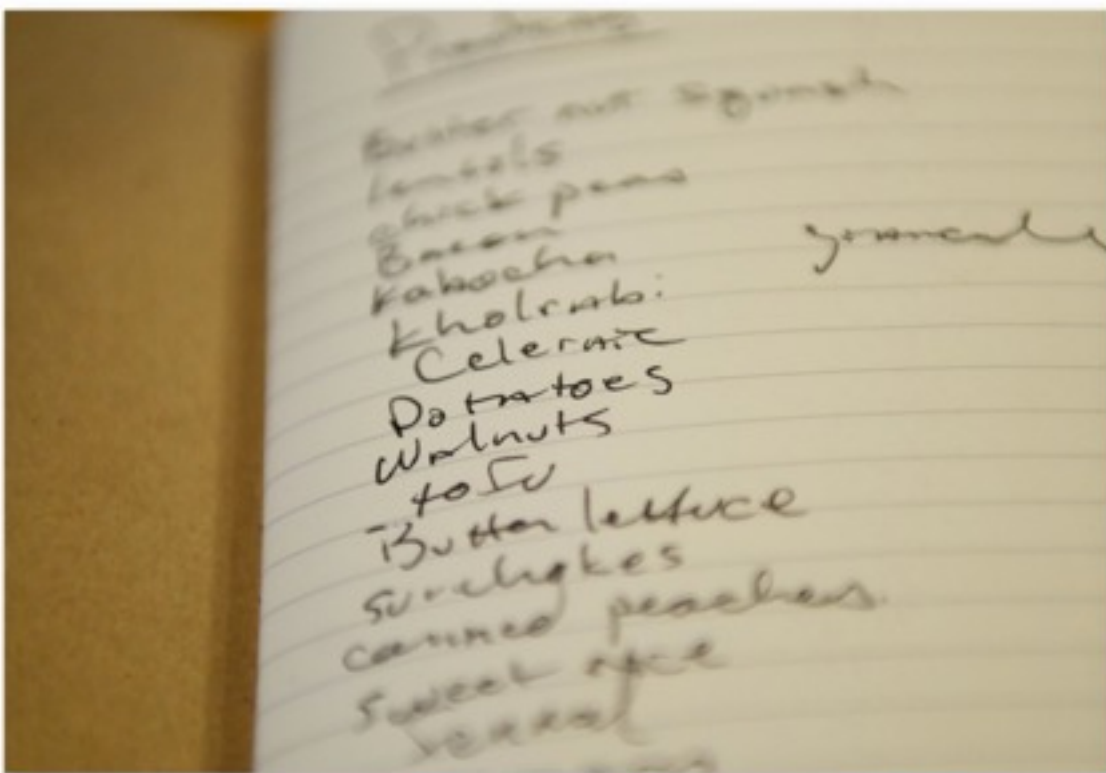 Butter nut squash
lentels
chick peas
Bacon
Kabocha
Kholrabi
Celeraic
Potatoes
Walnuts
tofu
Butter lettuce
sunchokes
canned peaches
sweet rice